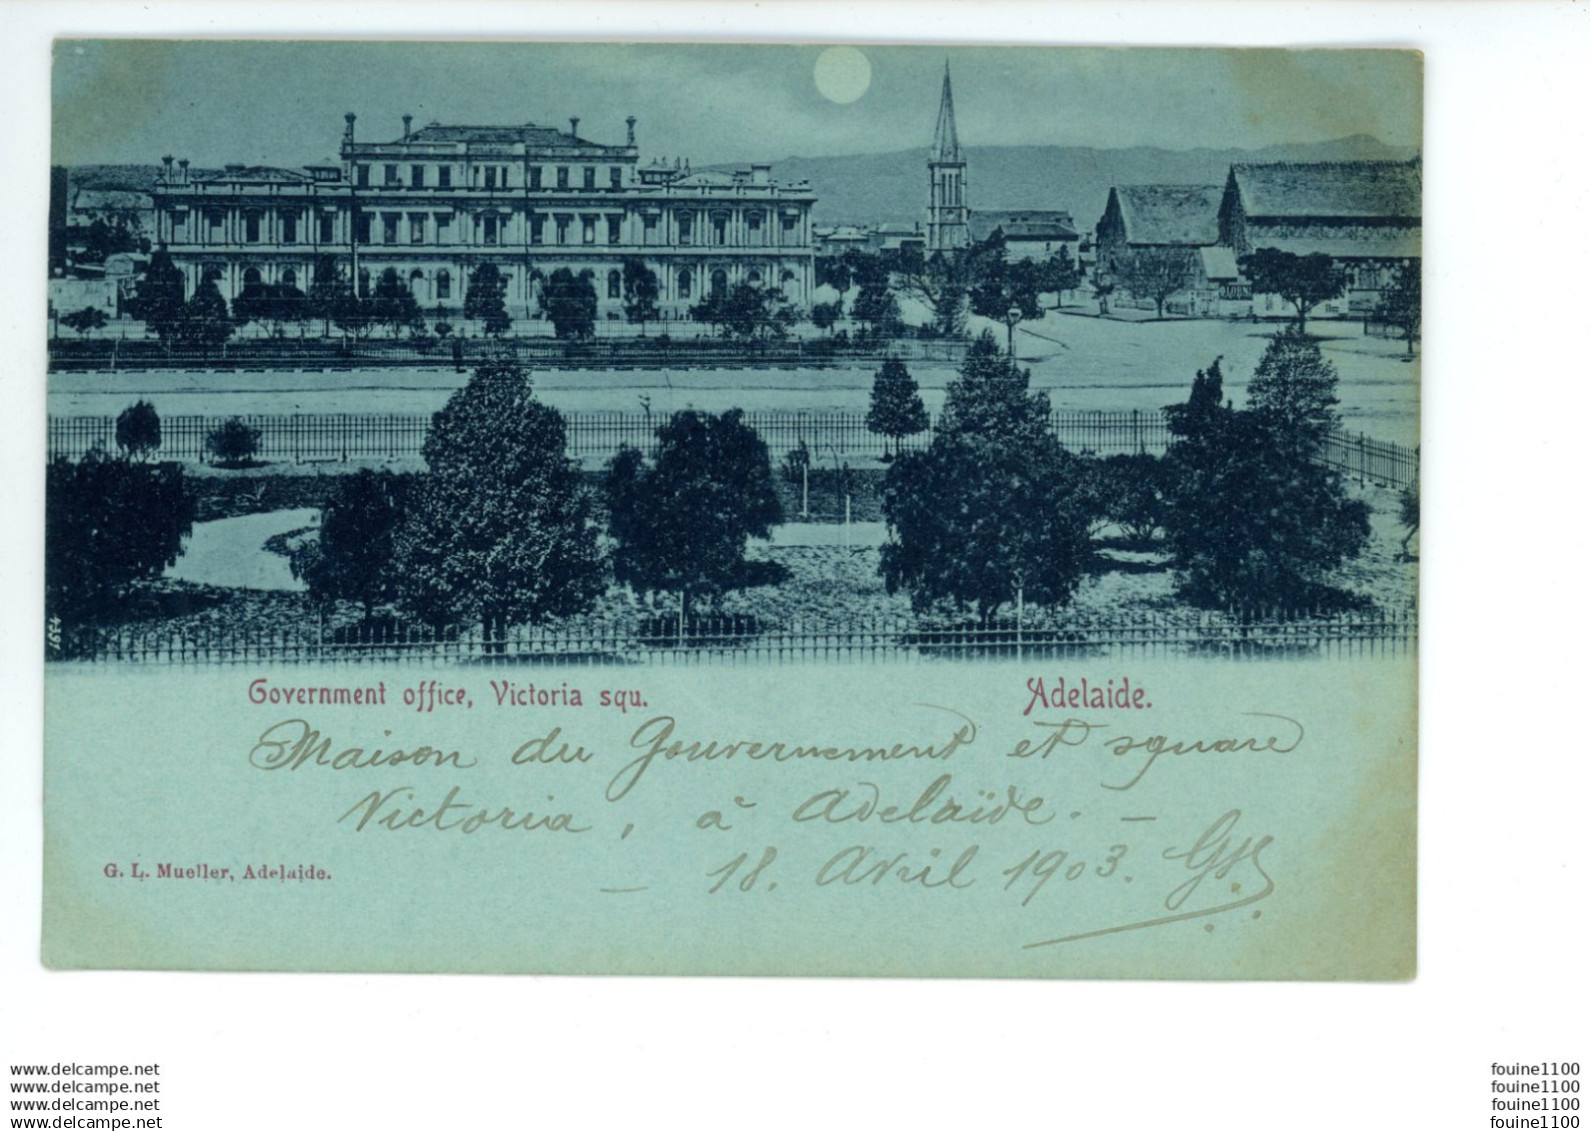 1654
Government office, Victoria squ.
Adelaide.
Maison du Gouvernement et square
Victoria, à Adelaïde. —
G. L. Mueller, Adelaide.
— 18. Avril 1903.
www.delcampe.net
www.delcampe.net
www.delcampe.net
www.delcampe.net
fouine1100
fouine1100
fouine1100
fouine1100